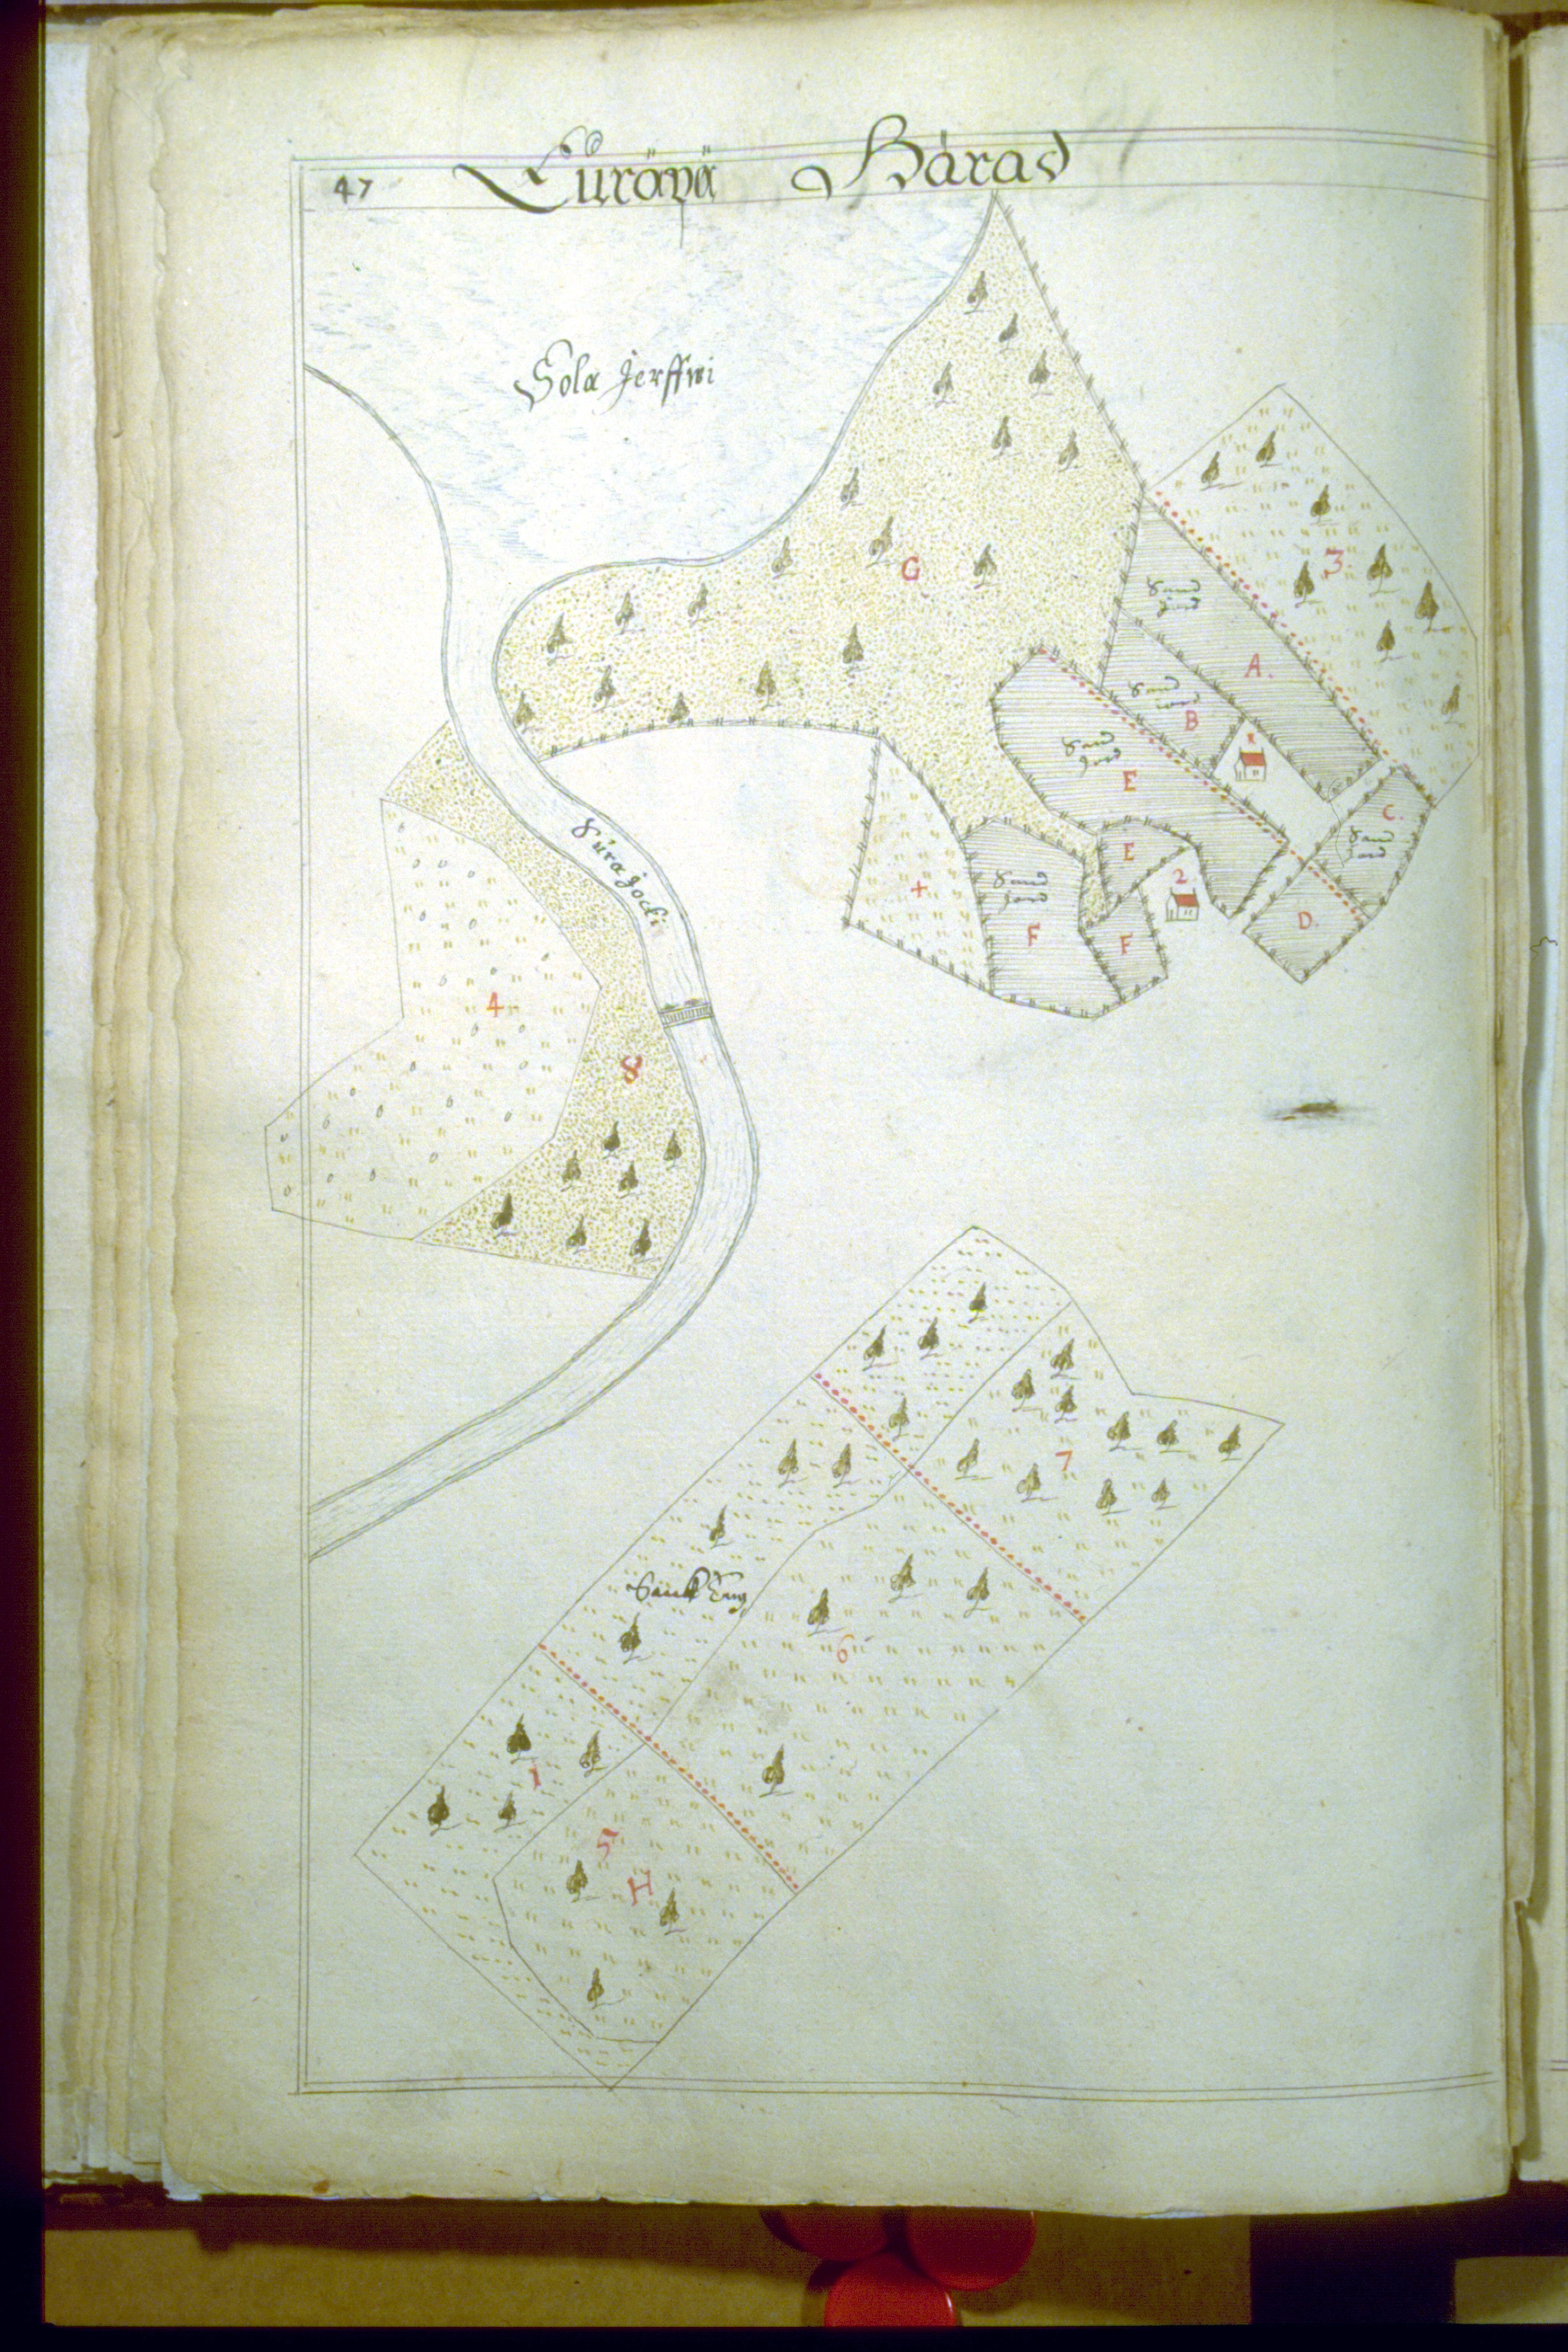 47
Euräpä Härad
Sola Jerffwi
G
3
Sand
jord
A.
Sand
B
1
Sand
Jord
E
C.
Sand
Jord
E
2
Sand
Jord
F
F
D.
+
Sura Jocki
4
8
7
Sanck Eng
6
1
5
H